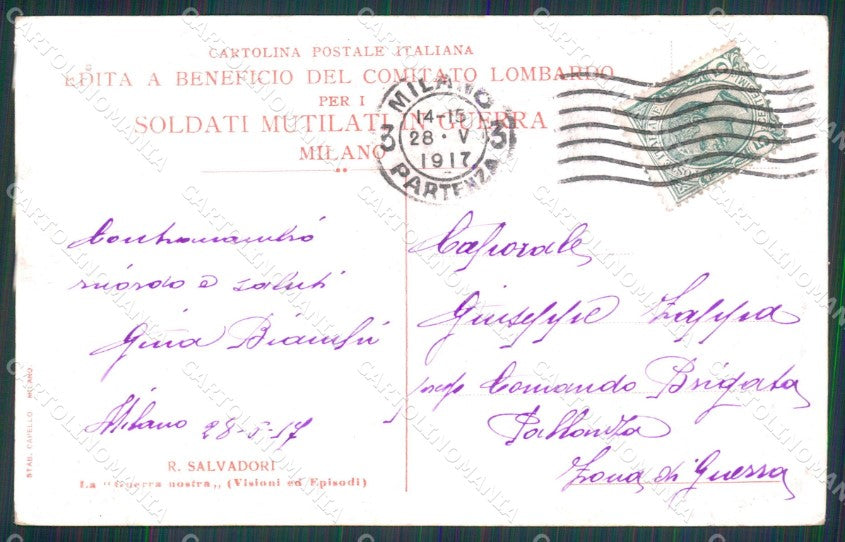 CARTOLINA POSTALE ITALIANA
EDITA A BENEFICIO DEL COMITATO LOMBARDO
PER I
SOLDATI MUTILATI IN GUERRA
MILANO
MILANO
14-15
28 · V
1917
3 3
PARTENZA
ricordo e saluti
Gina Bianchi
Milano 28-5-17
R. SALVADORI
La "Guerra nostra„ (Visioni ed Episodi)
STAB. CAPELLO. MILANO.
Caporale
Giuseppe Zappa
Comando Brigata
Pallanza
Zona di Guerra
CARTOLINOMANIA